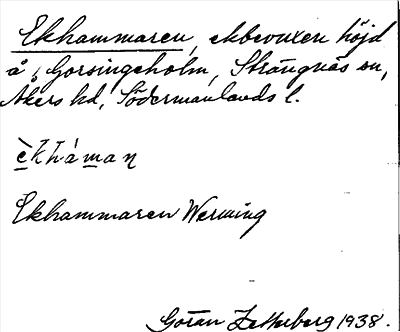 Ekhammaren, ekbevuxen höjd
å Gorsingeholm, Strängnäs sn,
Åkers hd, Södermanlands l.
èkháman
Ekhammaren Werming
Göran Zetterberg 1938.